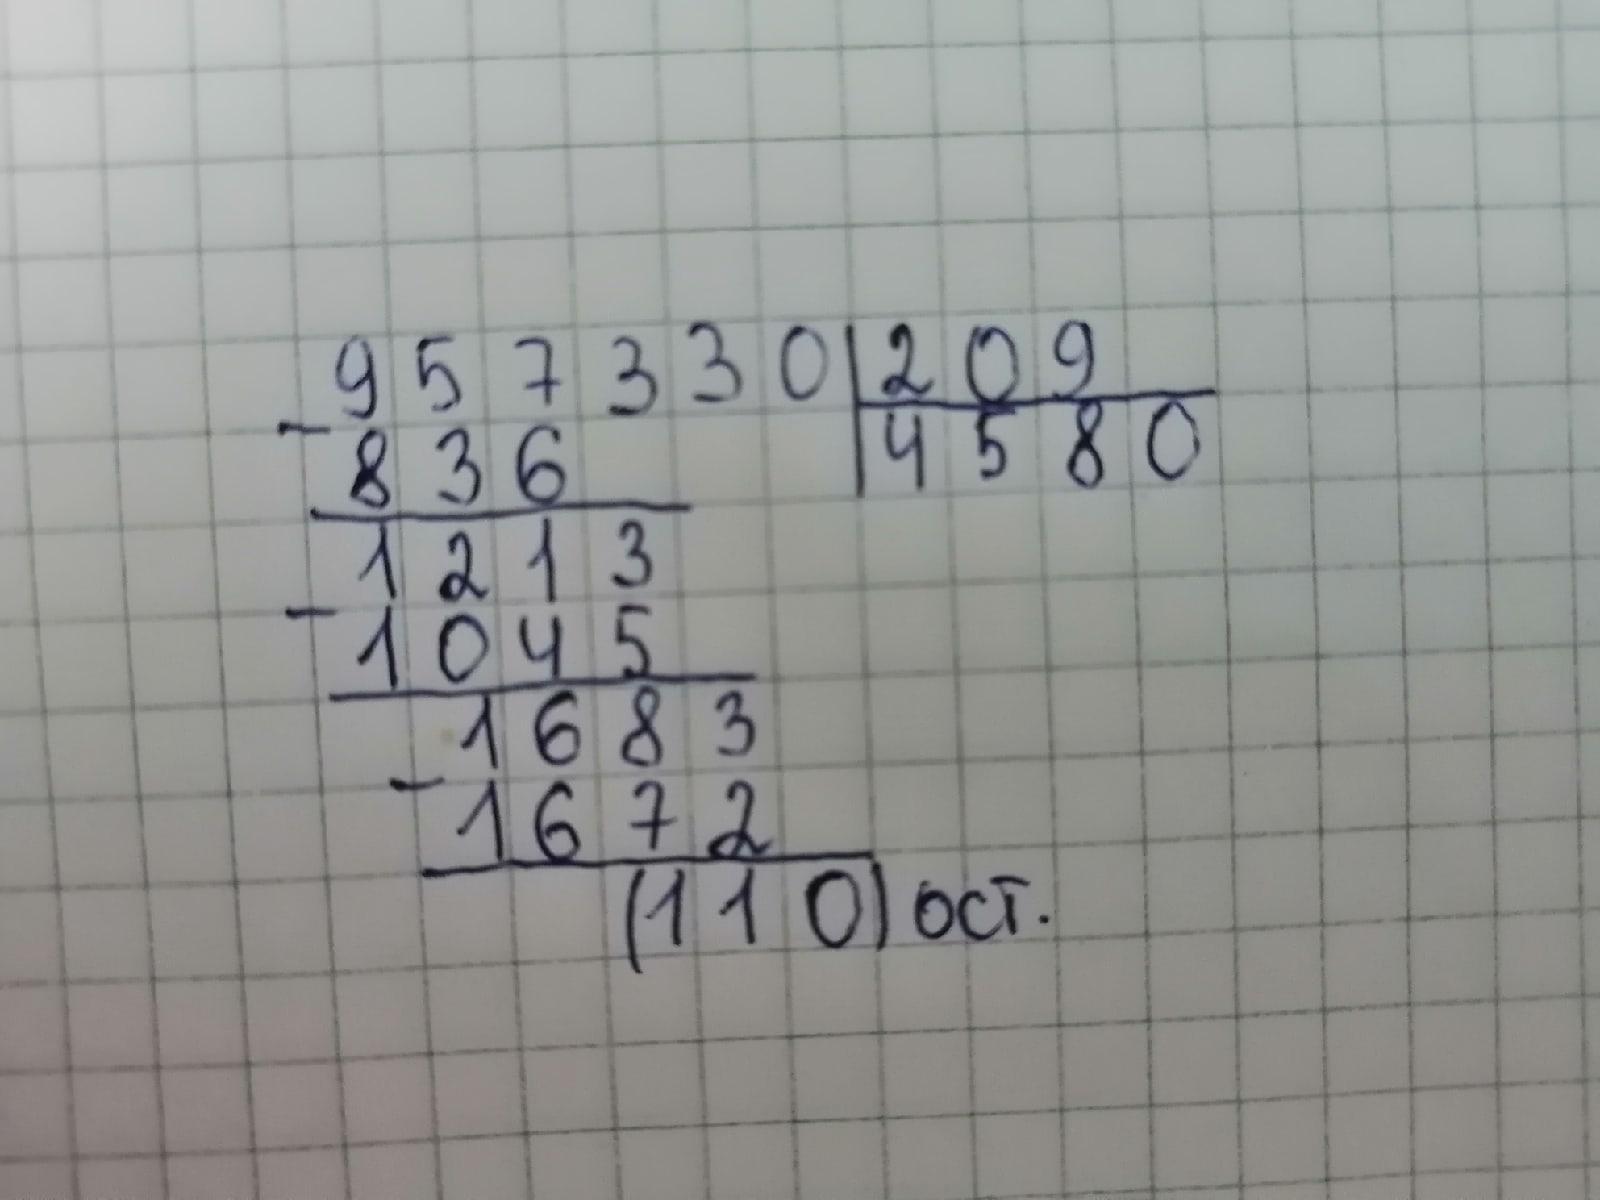 957330|209
- 836 |4580
1213
- 1045
1683
- 1672
(110) ост.